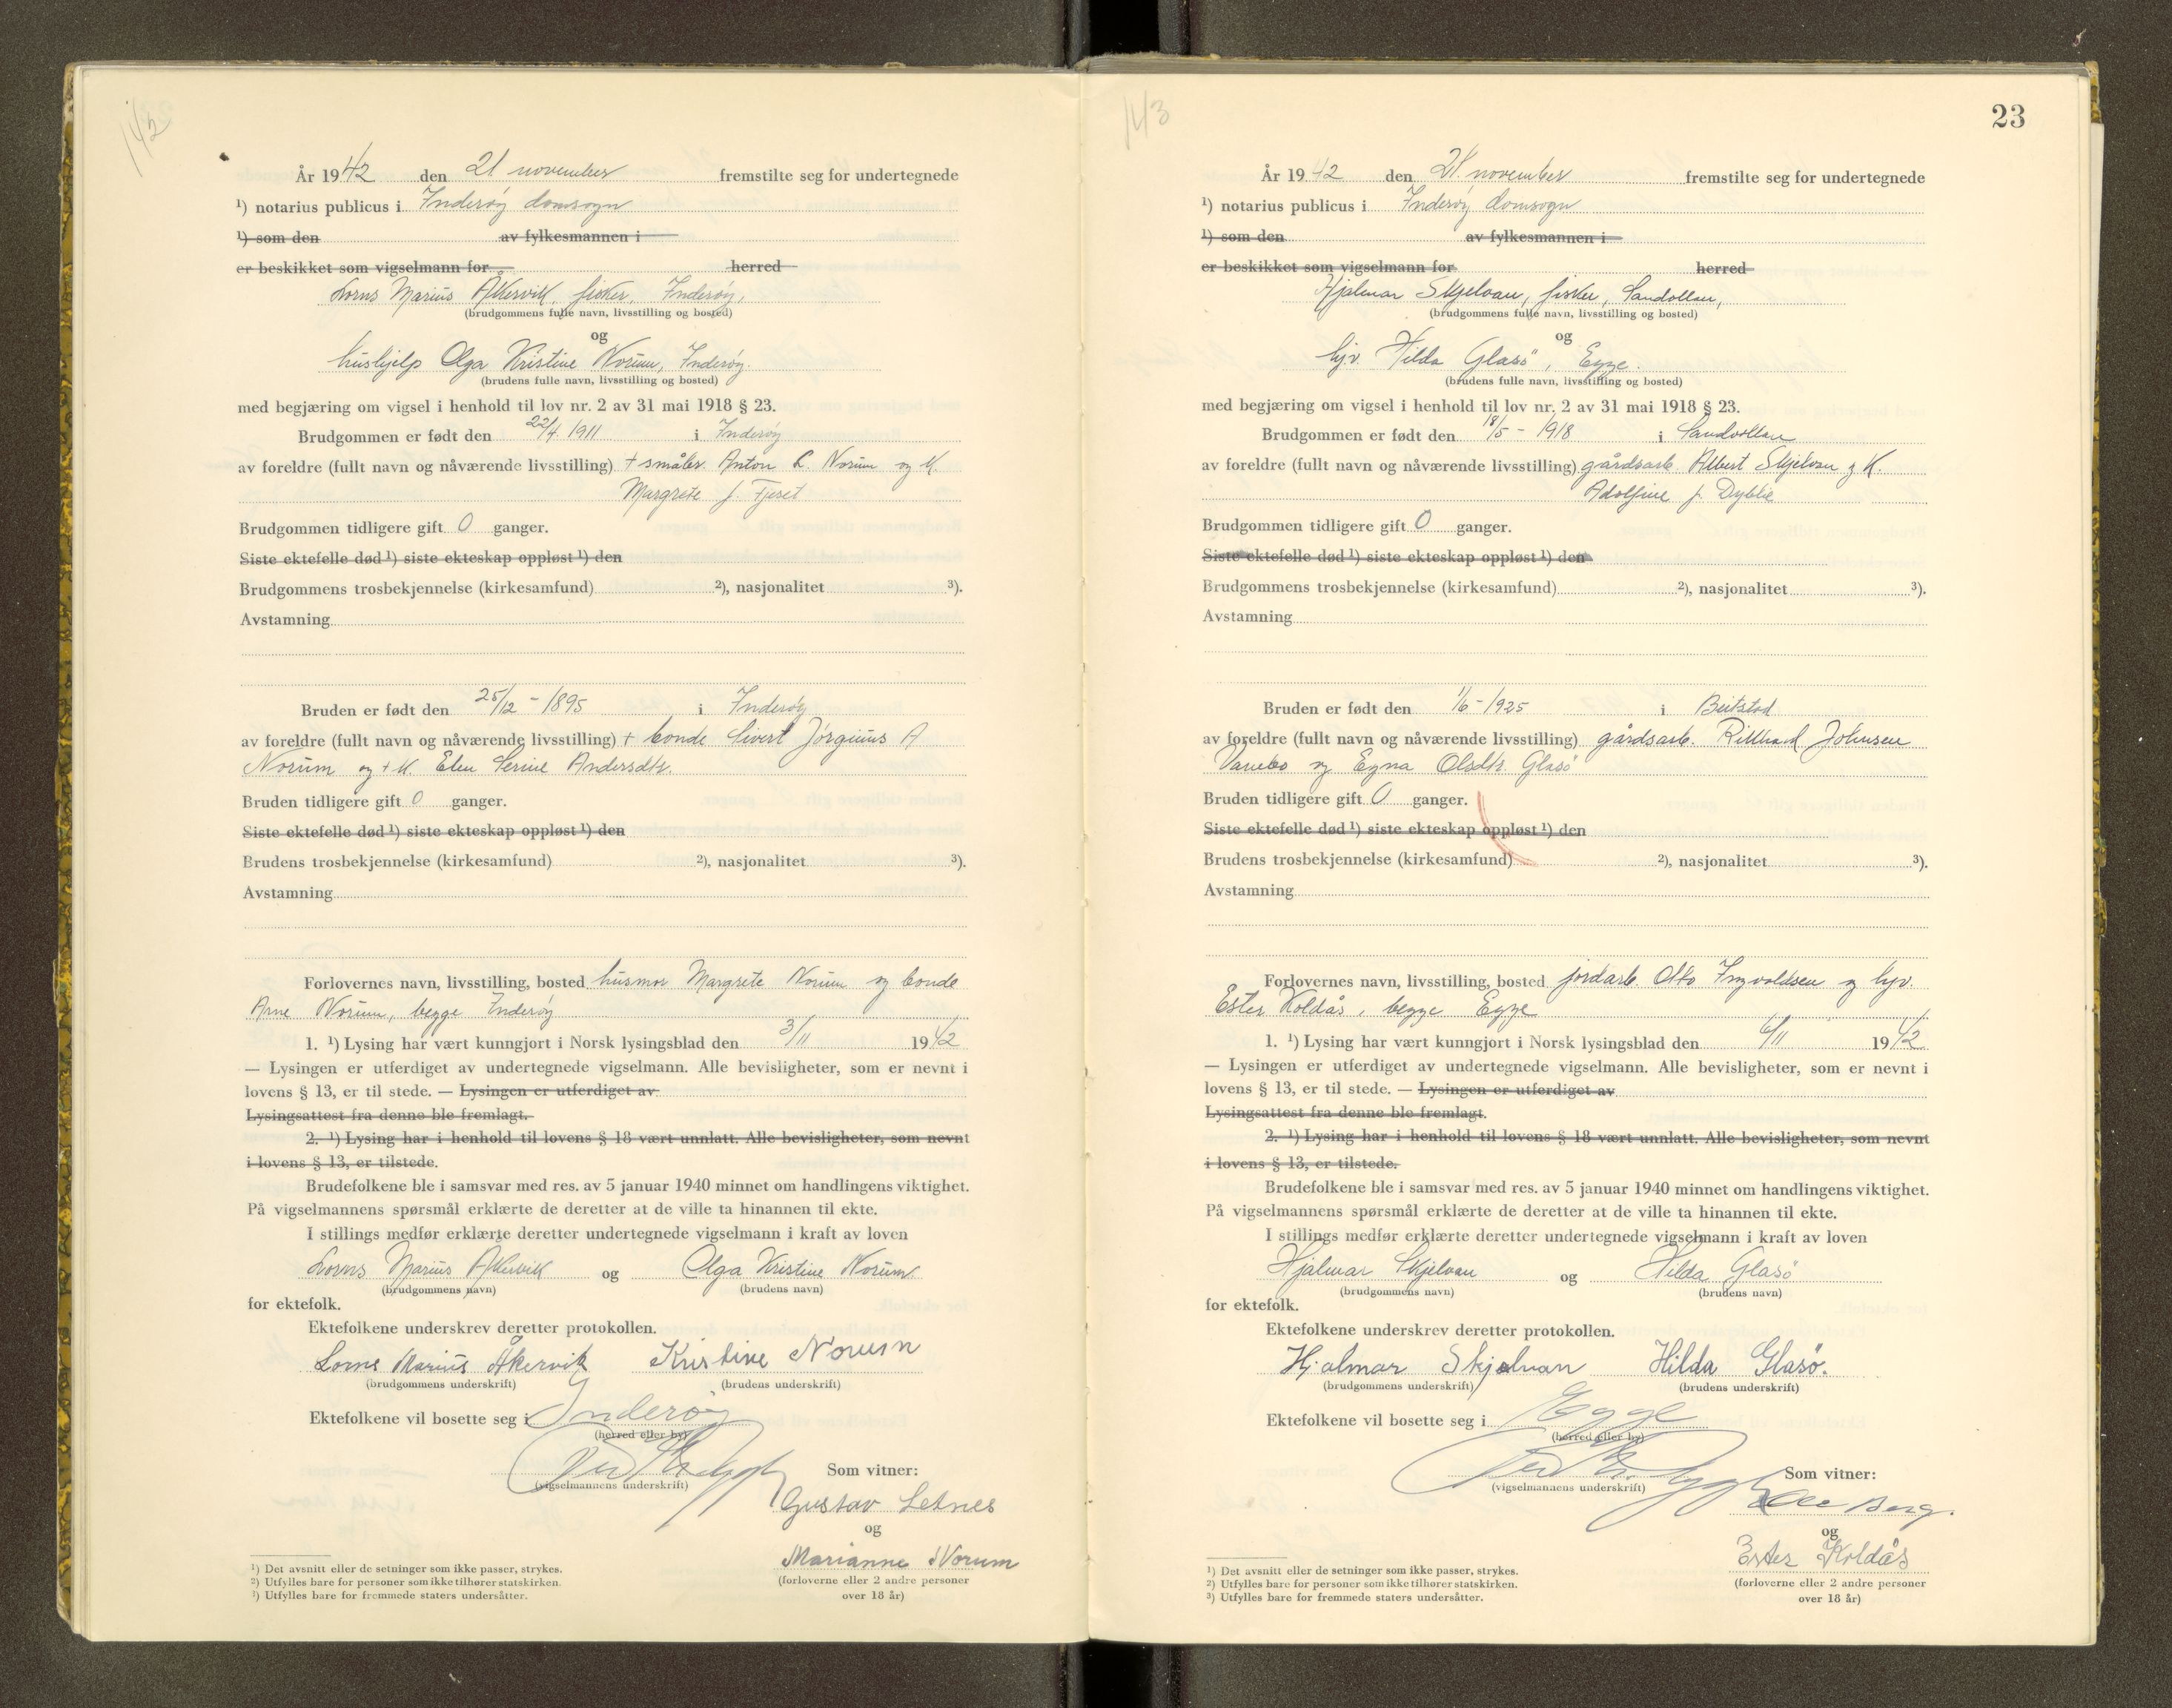 142
År 1942 den 21 november fremstilte seg for undertegnede
¹) notarius publicus i Inderøy domsogn
¹) som den av fylkesmannen i
er beskikket som vigselmann for herred
Marius Åkervik, fisker, Inderøy,
(brudgommens fulle navn, livsstilling og bosted)
og
hushjelp Olga Kristine Norum, Inderøy.
(brudens fulle navn, livsstilling og bosted)
med begjæring om vigsel i henhold til lov nr. 2 av 31 mai 1918 § 23.
Brudgommen er født den 22/4 1911 i Inderøy
av foreldre (fullt navn og nåværende livsstilling) + småbr. Anton L. Norum og K.
Margrete f. Tjeset
Brudgommen tidligere gift 0 ganger.
Siste ektefelle død ¹) siste ekteskap oppløst ¹) den
Brudgommens trosbekjennelse (kirkesamfund) ²), nasjonalitet ³).
Avstamning
Bruden er født den 25/12 - 1895 i Inderøy
av foreldre (fullt navn og nåværende livsstilling) + bonde Sivert Jørginus A
Norum og + K. Elen Serine Andersdtr.
Bruden tidligere gift 0 ganger.
Siste ektefelle død ¹) siste ekteskap oppløst ¹) den
Brudens trosbekjennelse (kirkesamfund) ²), nasjonalitet ³).
Avstamning
Forlovernes navn, livsstilling, bosted husmor Margrete Norum og bonde
Arne Norum, begge Inderøy
1. ¹) Lysing har vært kunngjort i Norsk lysingsblad den 3/11 1942
— Lysingen er utferdiget av undertegnede vigselmann. Alle bevisligheter, som er nevnt i
lovens § 13, er til stede. — Lysingen er utferdiget av
Lysingsattest fra denne ble fremlagt.
2. ¹) Lysing har i henhold til lovens § 18 vært unnlatt. Alle bevisligheter, som nevnt
i lovens § 13, er tilstede.
Brudefolkene ble i samsvar med res. av 5 januar 1940 minnet om handlingens viktighet.
På vigselmannens spørsmål erklærte de deretter at de ville ta hinannen til ekte.
I stillings medfør erklærte deretter undertegnede vigselmann i kraft av loven
Marius Åkervik og Olga Kristine Norum
(brudgommens navn) (brudens navn)
for ektefolk.
Ektefolkene underskrev deretter protokollen.
Marius Åkervik Kristine Norum
(brudgommens underskrift) (brudens underskrift)
Ektefolkene vil bosette seg i Inderøy
(herred eller by)
Som vitner:
(vigselmannens underskrift)
Gustav Letnes
og
Marianne Norum
(forloverne eller 2 andre personer
over 18 år)
¹) Det avsnitt eller de setninger som ikke passer, strykes.
²) Utfylles bare for personer som ikke tilhører statskirken.
³) Utfylles bare for fremmede staters undersåtter.
143
23
År 1942 den 21. november fremstilte seg for undertegnede
¹) notarius publicus i Inderøy domsogn
¹) som den av fylkesmannen i
er beskikket som vigselmann for herred
Hjalmar Skjelvan, fisker, Sandvollan,
(brudgommens fulle navn, livsstilling og bosted)
og
hjv. Hilda Glasø, Egge.
(brudens fulle navn, livsstilling og bosted)
med begjæring om vigsel i henhold til lov nr. 2 av 31 mai 1918 § 23.
Brudgommen er født den 18/5 - 1918 i Sandvollan
av foreldre (fullt navn og nåværende livsstilling) gårdsarb. Albert Skjelvan og K.
Adolfine f. Dyblie
Brudgommen tidligere gift 0 ganger.
Siste ektefelle død ¹) siste ekteskap oppløst ¹) den
Brudgommens trosbekjennelse (kirkesamfund) ²), nasjonalitet ³).
Avstamning
Bruden er født den 1/6 - 1925 i Beitstad
av foreldre (fullt navn og nåværende livsstilling) gårdsarb. Rikhard Johnsen
Vanebo og Egna Olsdtr. Glasø
Bruden tidligere gift 0 ganger.
Siste ektefelle død ¹) siste ekteskap oppløst ¹) den
Brudens trosbekjennelse (kirkesamfund) ²), nasjonalitet ³).
Avstamning
Forlovernes navn, livsstilling, bosted jordarb. Otto Ingvoldsen og hjv.
Ester Koldås, begge Egge
1. ¹) Lysing har vært kunngjort i Norsk lysingsblad den 6/11 1942
— Lysingen er utferdiget av undertegnede vigselmann. Alle bevisligheter, som er nevnt i
lovens § 13, er til stede. — Lysingen er utferdiget av
Lysingsattest fra denne ble fremlagt.
2. ¹) Lysing har i henhold til lovens § 18 vært unnlatt. Alle bevisligheter, som nevnt
i lovens § 13, er tilstede.
Brudefolkene ble i samsvar med res. av 5 januar 1940 minnet om handlingens viktighet.
På vigselmannens spørsmål erklærte de deretter at de ville ta hinannen til ekte.
I stillings medfør erklærte deretter undertegnede vigselmann i kraft av loven
Hjalmar Skjelvan og Hilda Glasø
(brudgommens navn) (brudens navn)
for ektefolk.
Ektefolkene underskrev deretter protokollen.
Hjalmar Skjelvan Hilda Glasø.
(brudgommens underskrift) (brudens underskrift)
Ektefolkene vil bosette seg i Egge
(herred eller by)
Som vitner:
(vigselmannens underskrift)
Berg.
og
Ester Koldås
(forloverne eller 2 andre personer
over 18 år)
¹) Det avsnitt eller de setninger som ikke passer, strykes.
²) Utfylles bare for personer som ikke tilhører statskirken.
³) Utfylles bare for fremmede staters undersåtter.